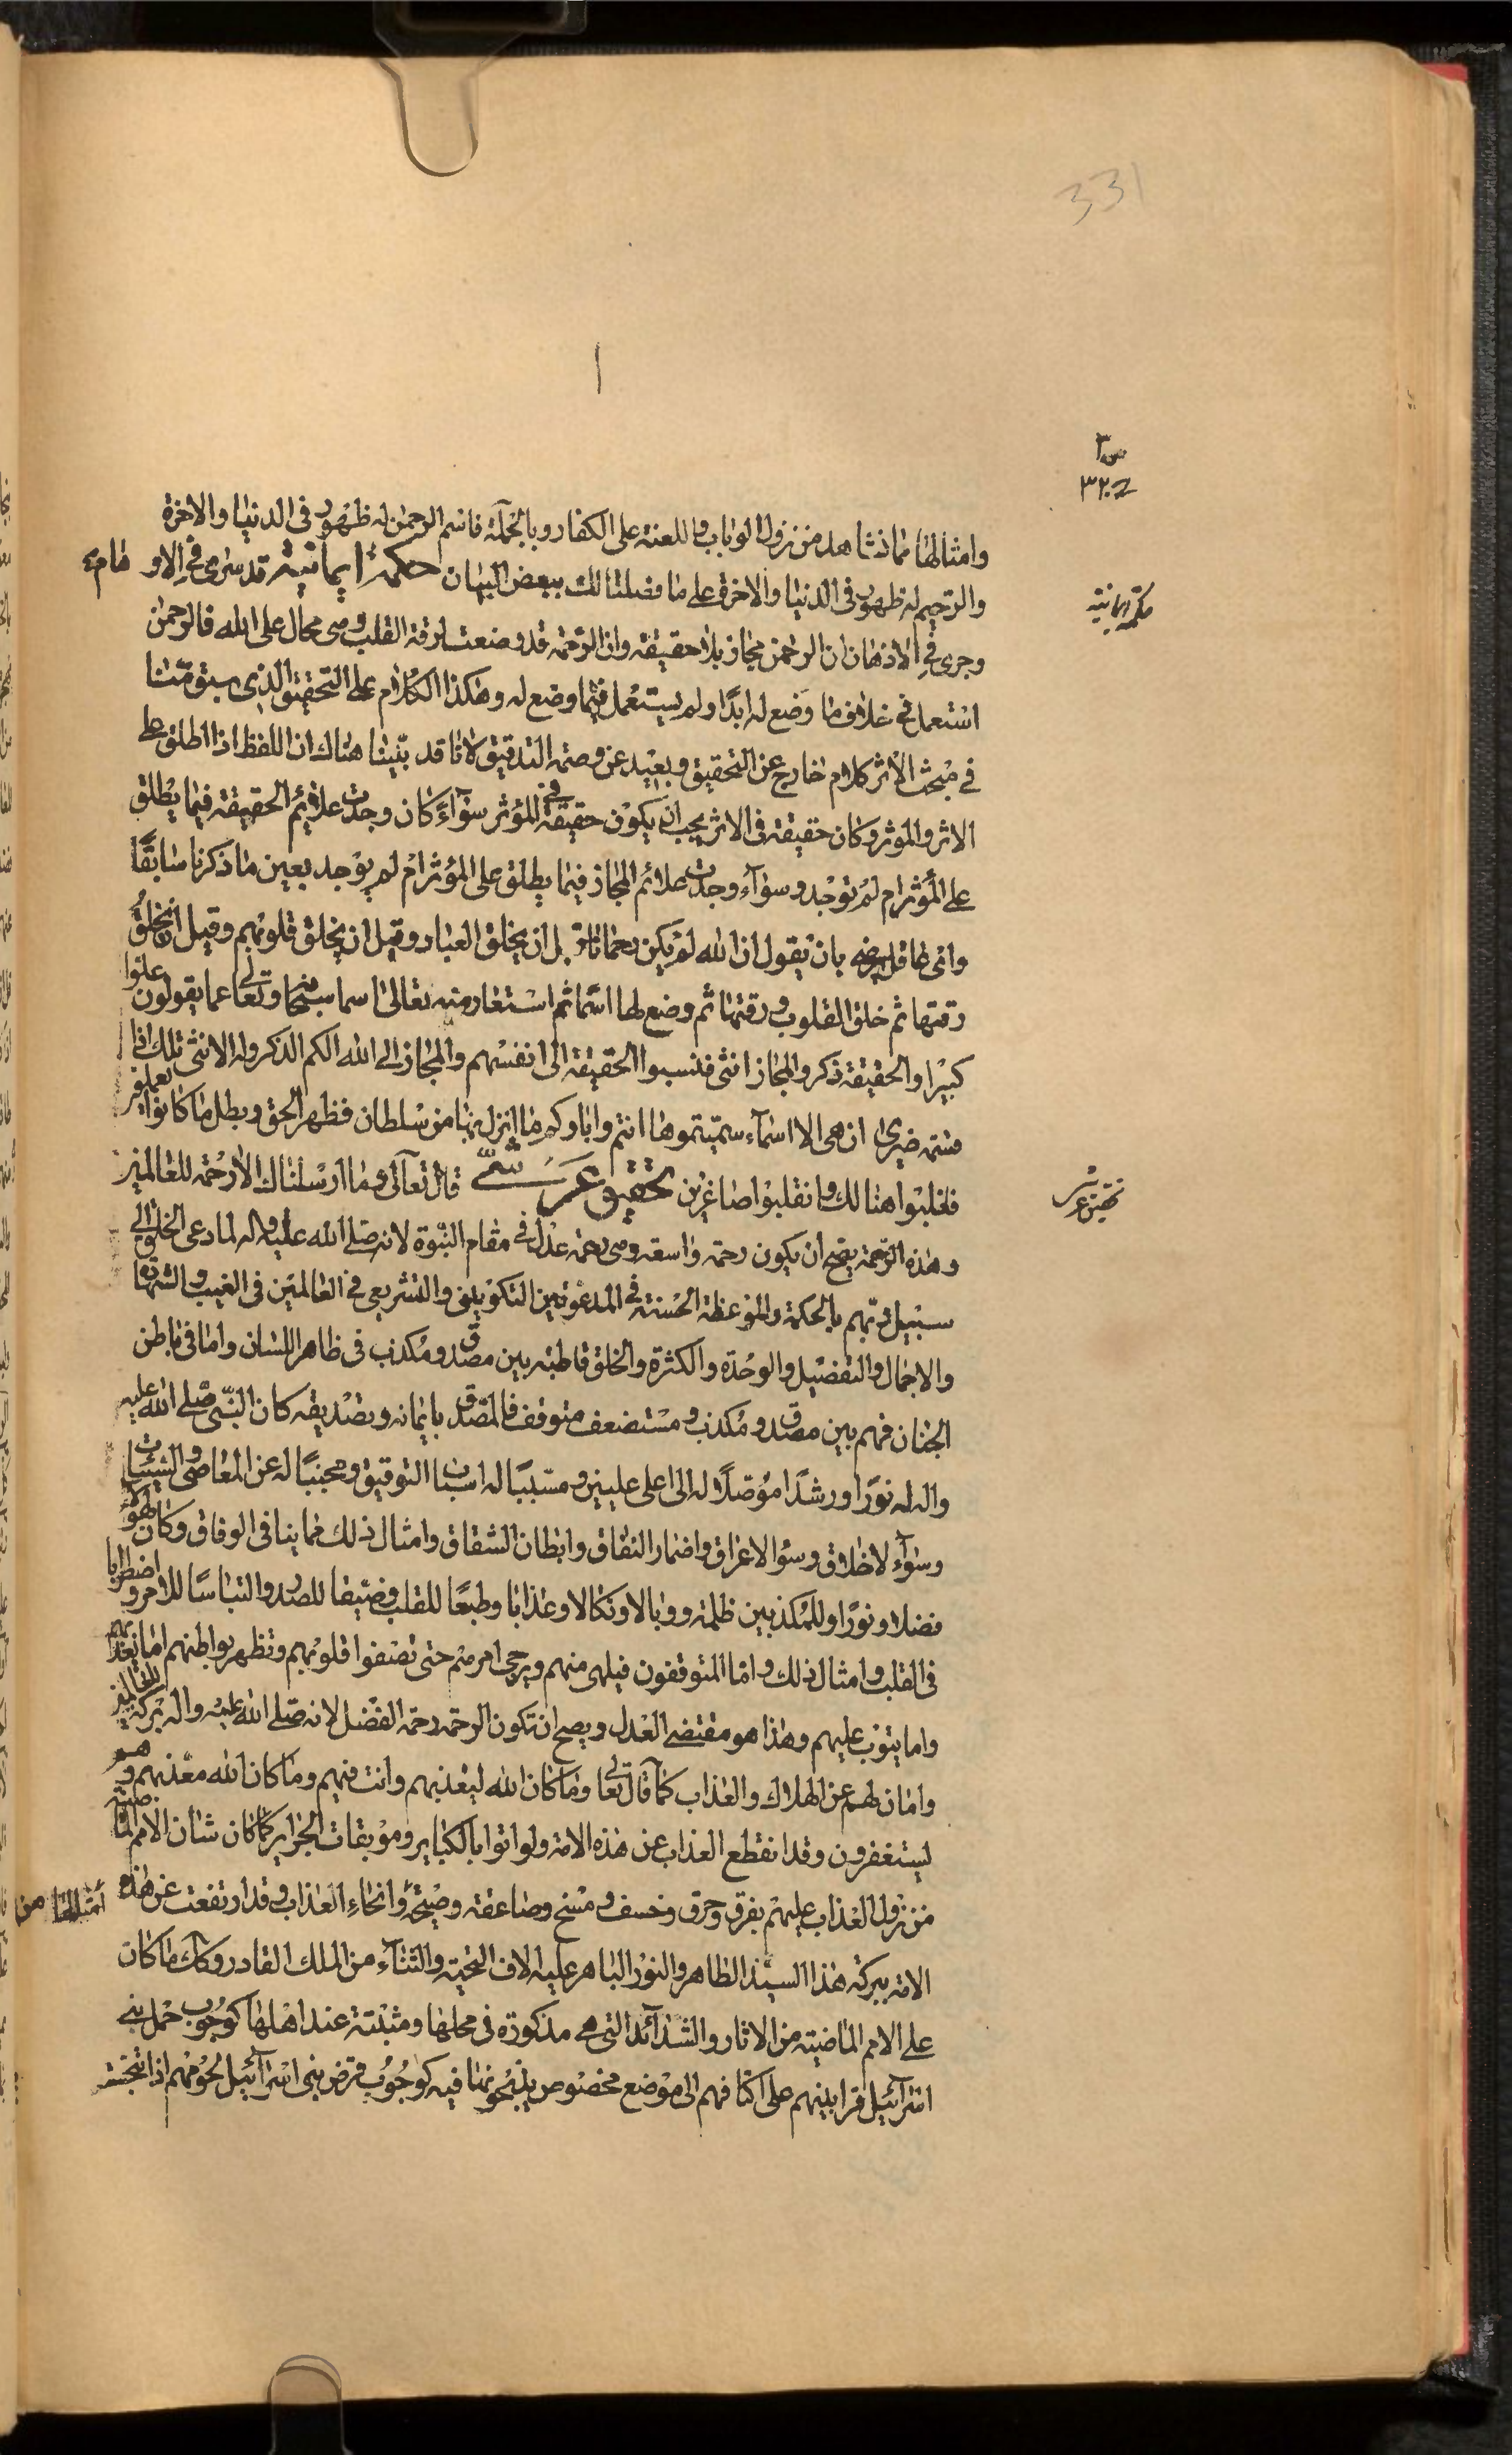 331
س٣
ح ٣٢
وامثالها مما نشاهد من نزول الوباء واللعنة على الكفار وبالجملة فاسم الرحمن له ظهور في الدنيا والاخرة
والرحيم له ظهور في الدنيا والاخرة على ما فصلنا لك ببعض البيان حكمة ايمانية قد سرى في الاوهام
حكمة ايمانية
وجرى في الاذهان ان الرحمن مجاز بلا حقيقة وان الرحمة قد وضعت لرقة القلب وهي محال على الله فالرحمن
استعمل في خلاف ما وضع له ابدا ولم يستعمل فيما وضع له وهكذا الكلام على التحقيق الذي سبق منا
في مبحث الاثر كلام خارج عن التحقيق وبعيد عن وصمة التدقيق لانا قد بينا هناك ان اللفظ اذا اطلق على
الاثر والموثر وكان حقيقة في الاثر يجب ان يكون حقيقة في المؤثر سواء كان وجدت علائم الحقيقة فيما يطلق
على المؤثر ام لم توجد وسواء وجدت علائم المجاز فيما يطلق على المؤثر ام لم يوجد بعين ما ذكرنا سابقا
واني عاقل يرضى بان يقول ان الله لم يكن رحمانا قبل ان يخلق العباد وقبل ان يخلق قلوبهم وقيل ان يخلق
رقتها ثم خلق القلوب ورقتها ثم وضع لها اسما ثم استعار منه تعالى اسما سبحانه وتعالى عما يقولون علوا
كبيرا والحقيقة ذكر والمجاز انثى فنسبوا الحقيقة الى انفسهم والمجاز الى الله الكم الذكر وله الانثى تلك اذا
قسمة ضيزى ان هي الا اسماء سميتموها انتم واباؤكم ما انزل بها من سلطان فظهر الحق وبطل ما كانوا يعملون
فغلبوا هنالك وانقلبوا صاغرين تحقيق عرشي قال تعالى وما ارسلناك الا رحمة للعالمين
تحقيق عرشي
وهذه الرحمة يصح ان يكون رحمة واسعة وهي رحمة عدل في مقام النبوة لانه صلى الله عليه واله لما دعى الخلق الى
سبيل ربهم بالحكمة والموعظة الحسنة في المدعوتين التكويني والتشريعي في العالمين في الغيب والشهادة
والاجمال والتفصيل والوحدة والكثرة والخلق قاطبة بين مصدق ومكذب في ظاهر اللسان واما في باطن
الجنان فهم بين مصدق ومكذب ومستضعف متوقف فالمصدق بايمانه وبتصديقه كان النبي صلى الله عليه
واله له نورا ورشدا موصلا له الى اعلى عليين ومسببا له اسباب التوفيق ومجنبا له عن المعاصي والسيئات
وسواء لاخلاق وسوء الاعراق واضمار النفاق وابطان الشقاق وامثال ذلك مما ينافي الوفاق وكان لهؤلاء
فضلا ونورا وللمكذبين ظلمة ووبالا ونكالا وعذابا وطبعا للقلب وضيقا للصدر والتباسا للامر واضطرابا
في القلب وامثال ذلك واما المتوقفون فيلهى منهم ويرجى امرهم حتى تصفوا قلوبهم وتظهر بواطنهم اما يعذبهم
واما يتوب عليهم وهذا هو مقتضى العدل ويصح ان تكون الرحمة رحمة الفضل لانه صلى الله عليه واله بركة للعالمين
وامان لهم عن الهلاك والعذاب كما قال تعالى وما كان الله ليعذبهم وانت فيهم وما كان الله معذبهم وهم
يستغفرون وقد انقطع العذاب عن هذه الامة ولو اتوا بالكبائر وموبقات الجرائر كما كان شأن الامم الماضية
من نزول العذاب عليهم بغرق وحرق وخسف ومسخ وصاعقة وصيحة وانحاء العذاب وقد ارتفعت عن هذه
امثالها من
الامة ببركة هذا السيد الطاهر والنور الباهر عليه الاف التحية والثناء من الملك القادر وكذلك ما كان
على الامم الماضية من الاثار والشدائد التي هي مذكورة في محلها ومثبتة عند اهلها كوجوب حمل بني
اسرائيل قرابينهم على اكتافهم الى موضع مخصوص يذبحونها فيه كوجوب قرض بني اسرائيل لحومهم اذا تنجست